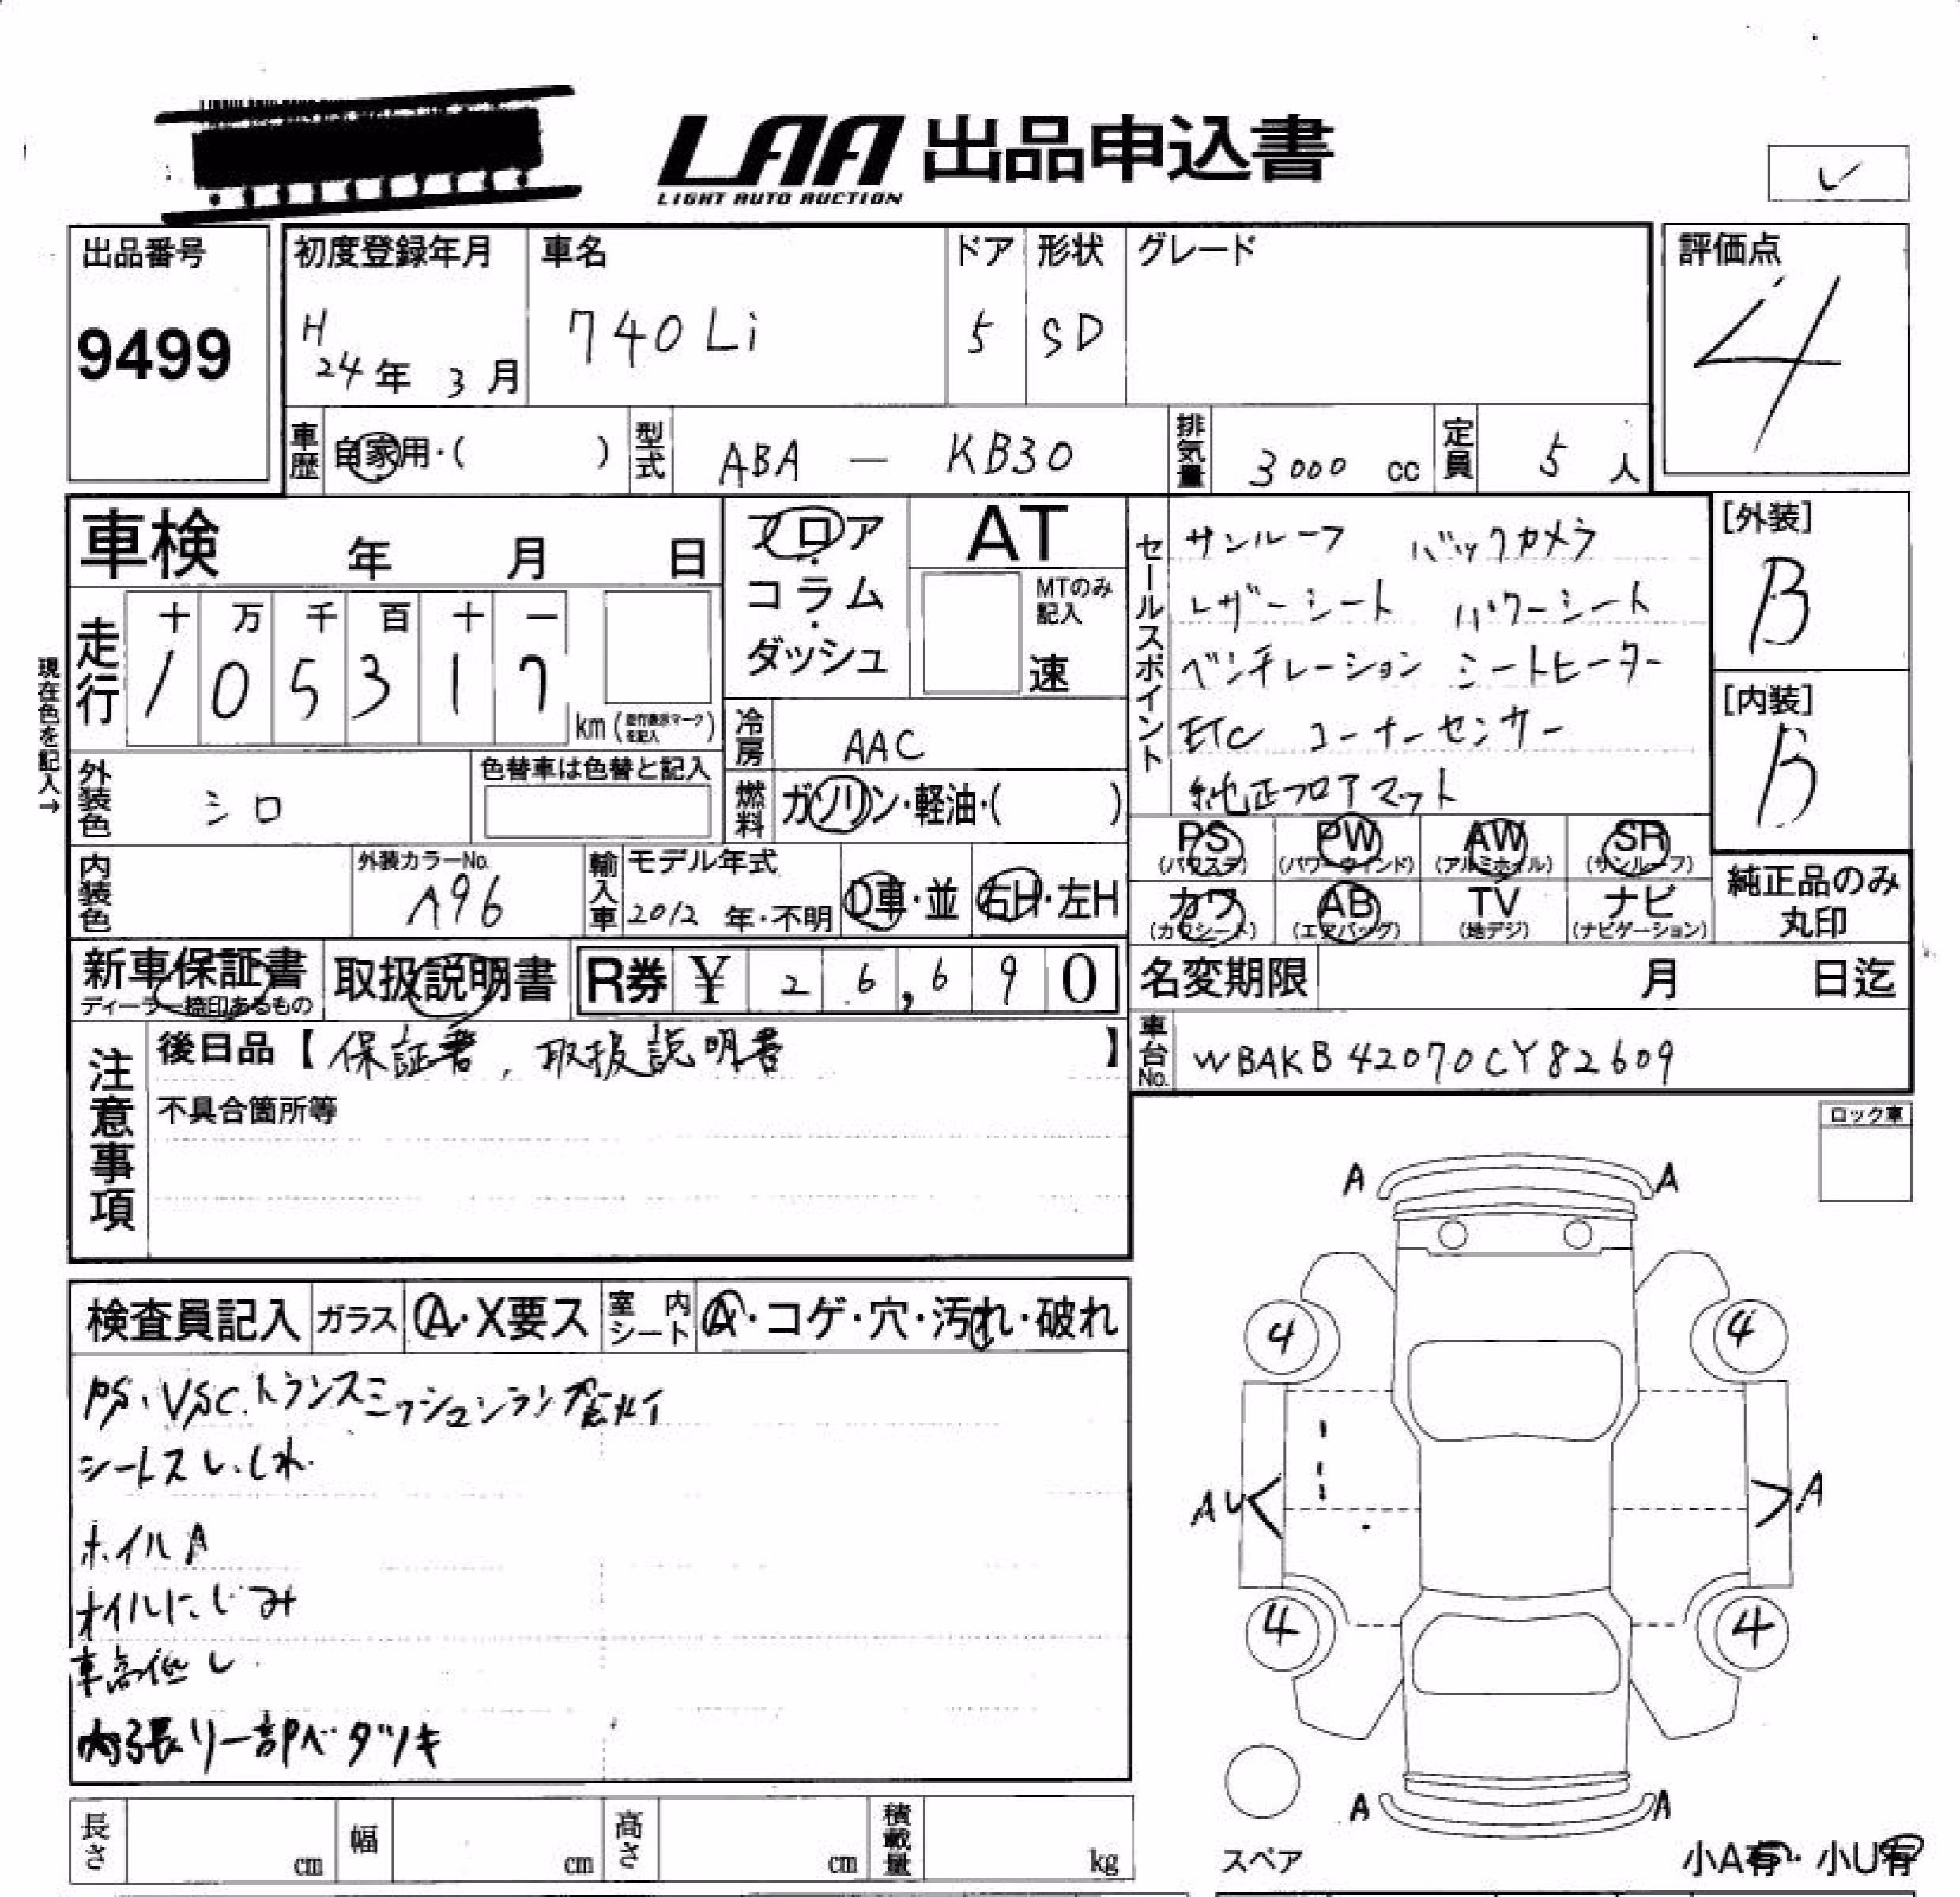 LAA 出品申込書
LIGHT AUTO AUCTION
レ
出品番号
9499
初度登録年月
H
24年 3月
車名
740Li
ドア
5
形状
SD
グレード
評価点
4
車歴
自家用・( )
型式
ABA — KB30
排気量
3000 cc
定員
5 人
車検 年 月 日
現在色を記入→
走行
十 万 千 百 十 一
1 0 5 3 1 7
km (走行表示マークを記入)
フロア・
コラム・
ダッシュ
AT
MTのみ
記入
速
冷房
AAC
燃料
ガソリン・軽油・( )
セールスポイント
サンルーフ バックカメラ
レザーシート パワーシート
ベンチレーション シートヒーター
ETC コーナーセンサー
純正フロアマット
[外装]
B
[内装]
B
外装色
シロ
色替車は色替と記入
内装色
外装カラーNo.
A96
輸入車
モデル年式
2012 年・不明
D車・並
右H・左H
PS PW AW SR
(パワステ) (パワーウインド) (アルミホイル) (サンルーフ)
カワ AB TV ナビ
(カワシート) (エアバッグ) (地デジ) (ナビゲーション)
純正品のみ
丸印
新車保証書
ディーラー捺印あるもの
取扱説明書
R券 ¥ 2 6,6 9 0
名変期限 月 日迄
車台No.
WBAKB42070CY82609
注意事項
後日品【保証書、取扱説明書】
不具合箇所等
ロック車
検査員記入
ガラス
A・X要ス
室内シート
A・コゲ・穴・汚れ・破れ
PS、VSC、トランスミッションランプ点灯
シートスレ、しわ
ホイルA
オイルにじみ
車高低し
内張り一部ベタツキ
A A
4 4
AU A
4 4
A A
スペア
小A有・小U有
長さ cm
幅 cm
高さ cm
積載量 kg